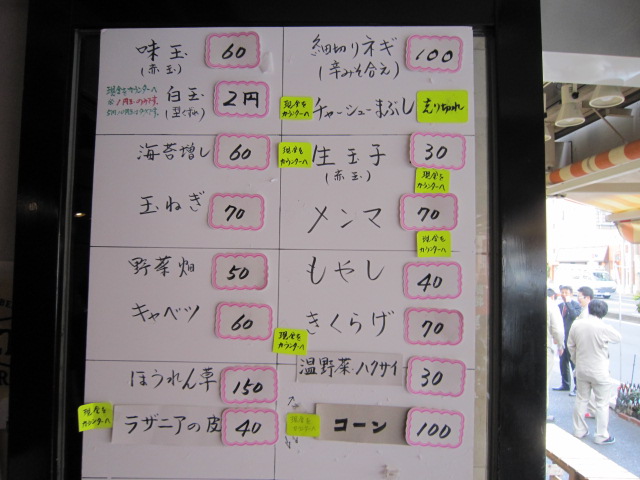 味玉 60
(赤玉)
現金をカウンターへ
白玉 2円
(型くずれ)
海苔増し 60
玉ねぎ 70
野菜畑 50
キャベツ 60
ほうれん草 150
現金を
カウンターへ
ラザニアの皮 40
細切りネギ 100
(辛みそ合え)
現金を
カウンターへ
チャーシューまぶし 売り切れ
現金を
カウンターへ
生玉子 30
(赤玉)
現金を
カウンターへ
メンマ 70
現金を
カウンターへ
もやし 40
きくらげ 70
現金を
カウンターへ
温野菜・ハクサイ 30
現金を
カウンターへ
コーン 100